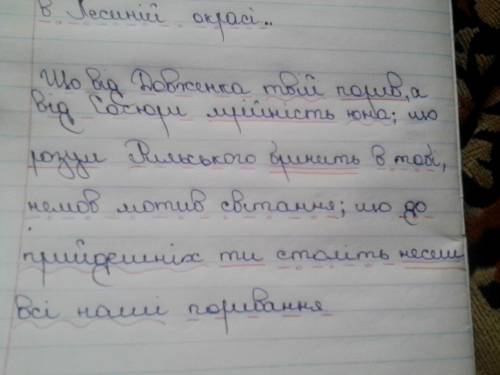 в Лесиній окрасі..
Що від Довженка твій порив, а
від Сосюри мрійність юна; що
розум Рильського бринить в тобі,
немов мотив світання; що до
прийдешніх ти століть несеш
всі наші поривання